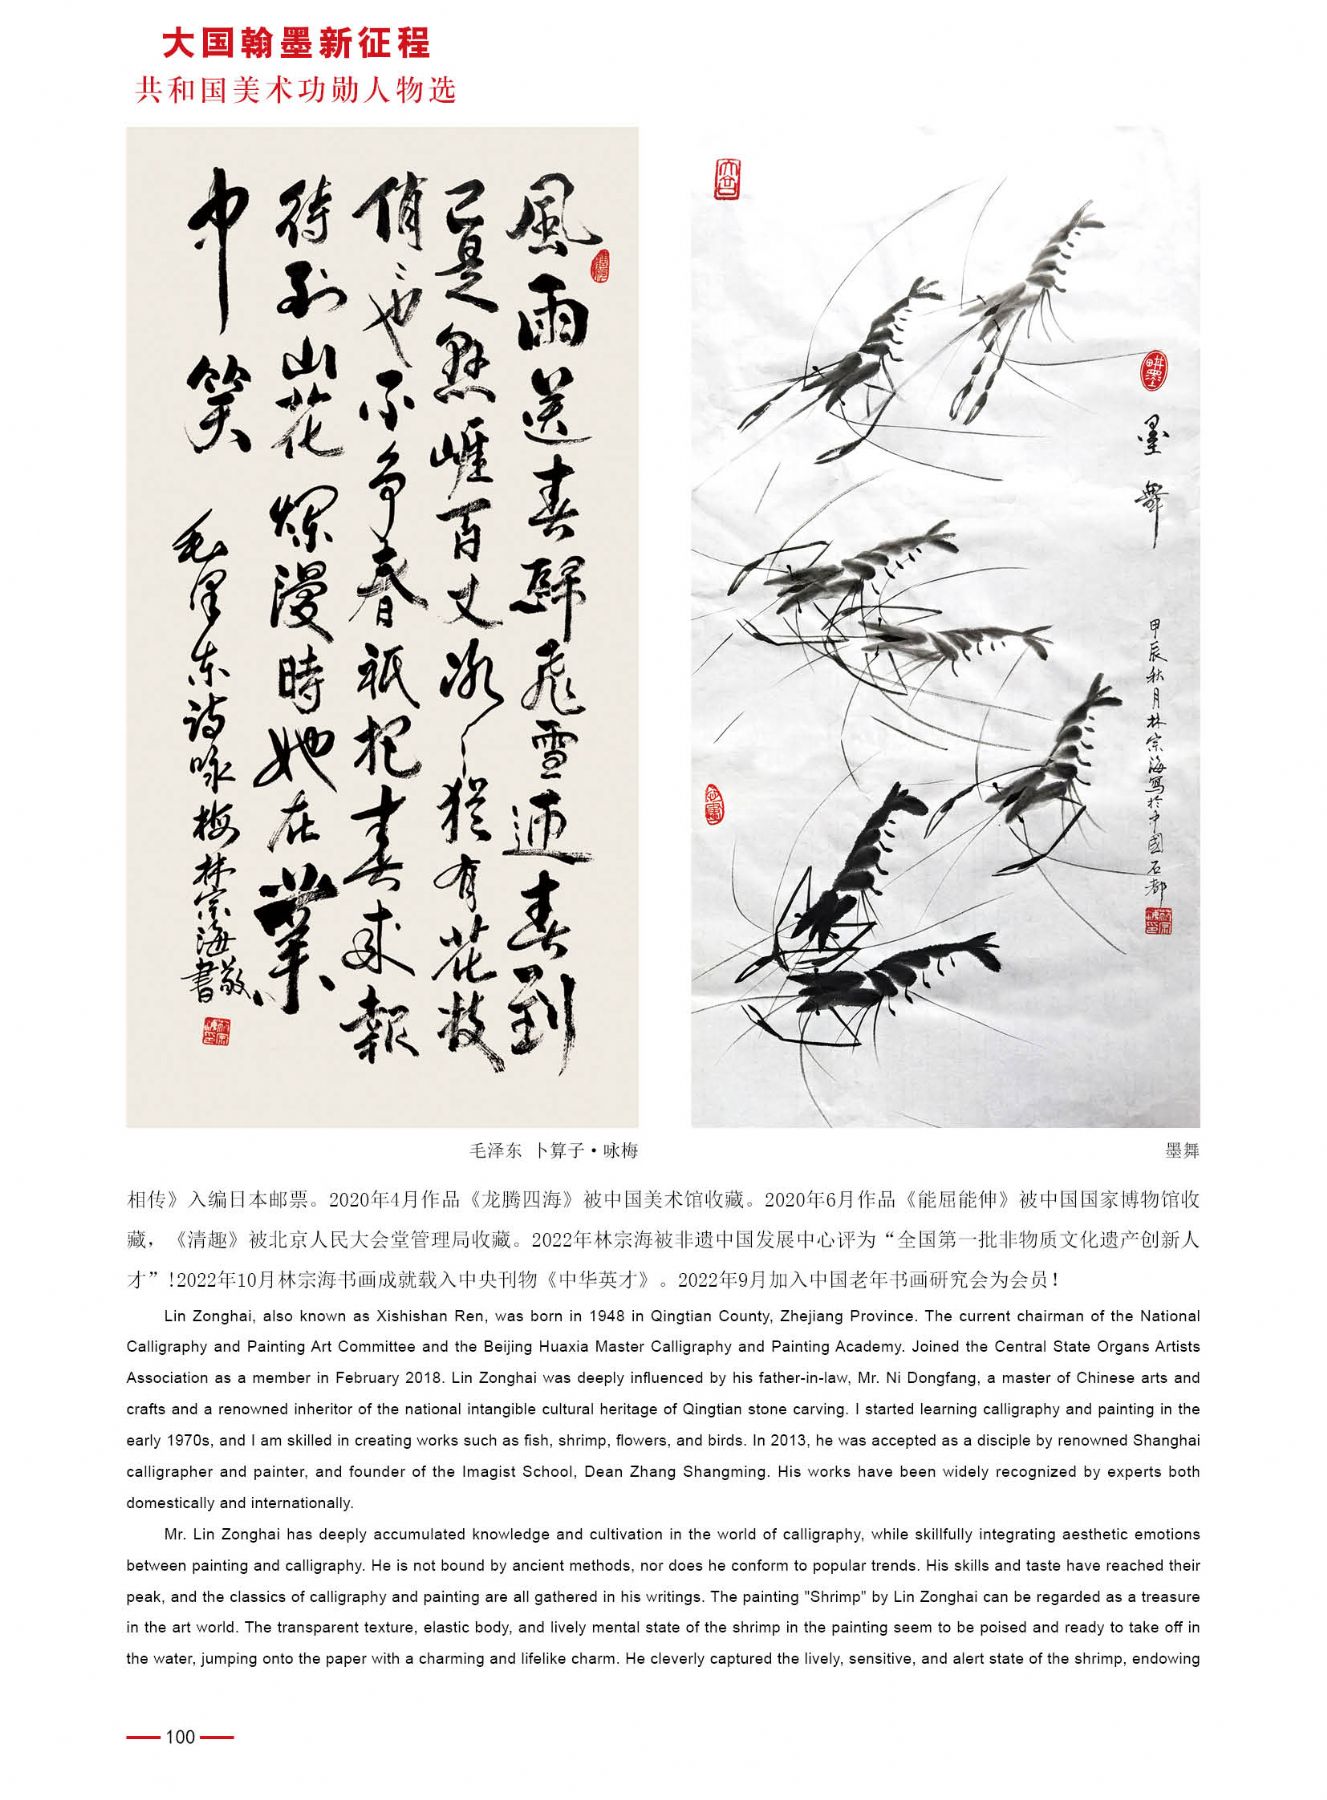 大国翰墨新征程
共和国美术功勋人物选
風雨送春歸飛雪迎春到
已是懸崖百丈冰猶有花枝
俏也不争春祇把春來報
待到山花爛漫時她在叢
中笑
毛澤东詩咏梅林宗海敬書
墨舞
甲辰秋月林宗海寫於中國石都
毛泽东 卜算子·咏梅
墨舞
相传》入编日本邮票。2020年4月作品《龙腾四海》被中国美术馆收藏。2020年6月作品《能屈能伸》被中国国家博物馆收
藏，《清趣》被北京人民大会堂管理局收藏。2022年林宗海被非遗中国发展中心评为“全国第一批非物质文化遗产创新人
才”!2022年10月林宗海书画成就载入中央刊物《中华英才》。2022年9月加入中国老年书画研究会为会员!
Lin Zonghai, also known as Xishishan Ren, was born in 1948 in Qingtian County, Zhejiang Province. The current chairman of the National
Calligraphy and Painting Art Committee and the Beijing Huaxia Master Calligraphy and Painting Academy. Joined the Central State Organs Artists
Association as a member in February 2018. Lin Zonghai was deeply influenced by his father-in-law, Mr. Ni Dongfang, a master of Chinese arts and
crafts and a renowned inheritor of the national intangible cultural heritage of Qingtian stone carving. I started learning calligraphy and painting in the
early 1970s, and I am skilled in creating works such as fish, shrimp, flowers, and birds. In 2013, he was accepted as a disciple by renowned Shanghai
calligrapher and painter, and founder of the Imagist School, Dean Zhang Shangming. His works have been widely recognized by experts both
domestically and internationally.
Mr. Lin Zonghai has deeply accumulated knowledge and cultivation in the world of calligraphy, while skillfully integrating aesthetic emotions
between painting and calligraphy. He is not bound by ancient methods, nor does he conform to popular trends. His skills and taste have reached their
peak, and the classics of calligraphy and painting are all gathered in his writings. The painting "Shrimp" by Lin Zonghai can be regarded as a treasure
in the art world. The transparent texture, elastic body, and lively mental state of the shrimp in the painting seem to be poised and ready to take off in
the water, jumping onto the paper with a charming and lifelike charm. He cleverly captured the lively, sensitive, and alert state of the shrimp, endowing
100